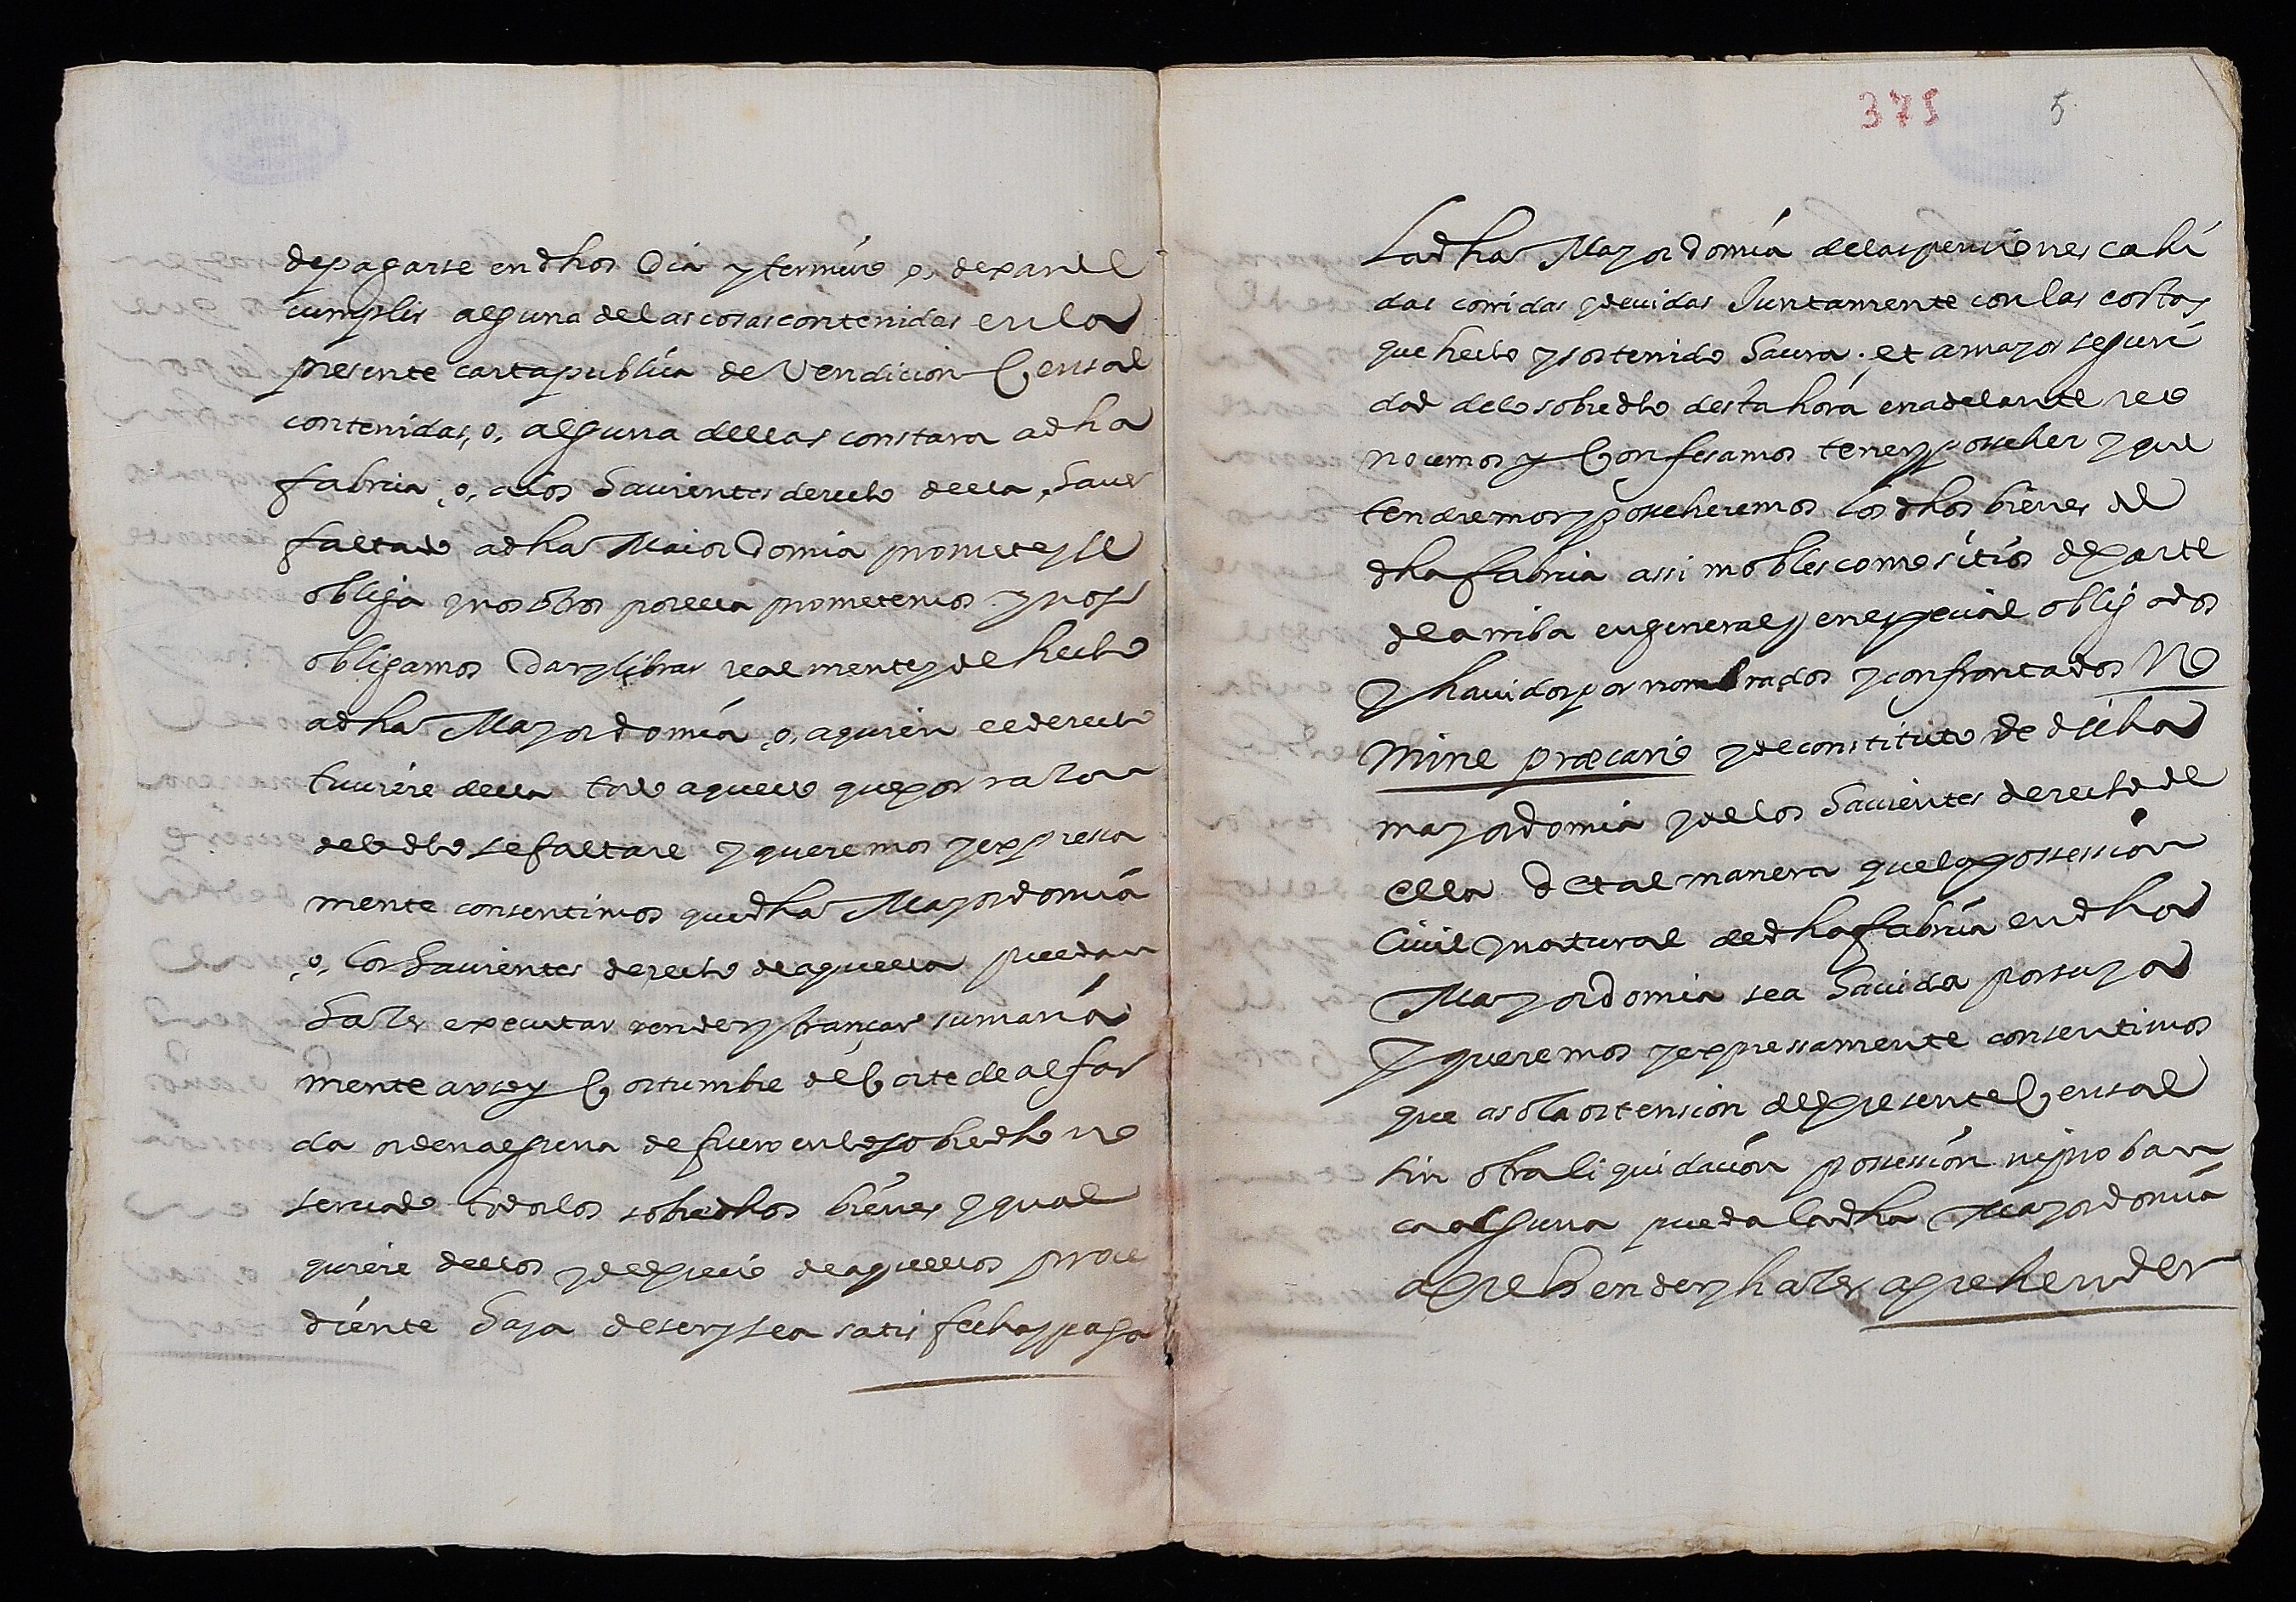 de pagarse en dhos Dia y termino o, dexar de
cumplir alguna de las cosas contenidas en la
presente carta publica de Vendicion Censal
contenidas, o, alguna dellas constara a dha
fabrica, o, a los hauientes derecho della, hauer
faltado a dha Maior Domia promete y se
obliga y nosotros por ella prometemos y nos
obligamos Dar y librar realmente y de hecho
a dha Mayordomia, o, a quien el derecho
tuuiere della todo aquello que por razon
de lo dho se faltare y queremos y expressa
mente consentimos que dha Mayordomia
o, los hauientes derecho de aquella puedan
hazer executar vender y trançar sumaria
mente a vso y Costumbre de Corte de alfar
da orden alguna de fuero en lo sobredho no
seruado todos los sobredhos bienes y qual
quiere dellos y del precio de aquellos proce
diente haya de ser y sea satisfecha y paga
375 5
La dha Mayordomia de las pensiones cahi
das corridas y deuidas Juntamente con las costas
que hecho y sostenido haura. et a mayor seguri
dad de lo sobredho desta hora en adelante reco
nocemos y Confesamos tener y posseher y que
tendremos y posseheremos los dhos bienes de
dha fabrica assi mobles como sitios de parte
de arriba en general y en especial obligados
y hauidos por nombrados y confrontados No
mine precario y de constituto de dicha
mayordomia y de los hauientes derecho de
ella de tal manera que la possession
Ciuil y natural de dha fabrica en dha
Mayordomia sea hauida por suya
y queremos y expressamente consentimos
que a sola ostension del presente Censal
sin otra liquidacion possession ni proban
ca alguna pueda la dha Mayordomia
aprehender y hazer aprehender